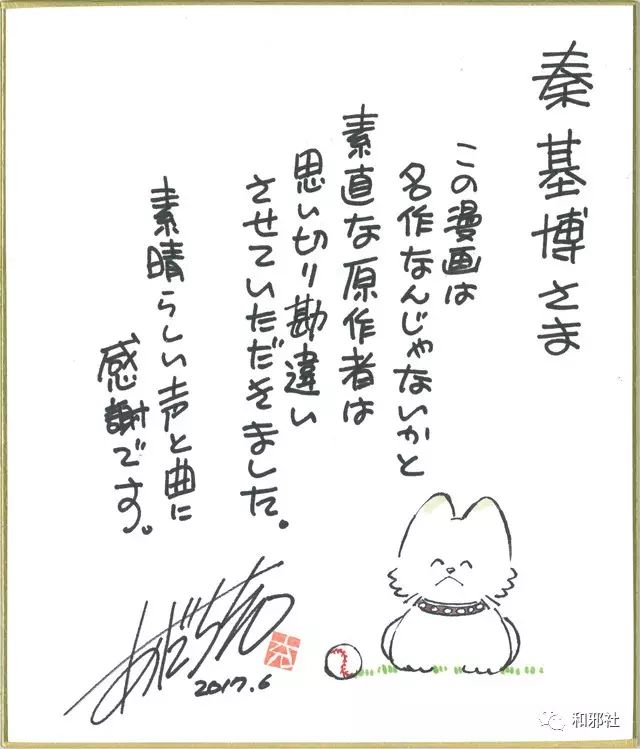 秦基博さま
この漫画は
名作なんじゃないかと
素直な原作者は
思い切り勘違い
させていただきました。
素晴らしい声と曲に
感謝です。
あだち充
2017.6
和邪社